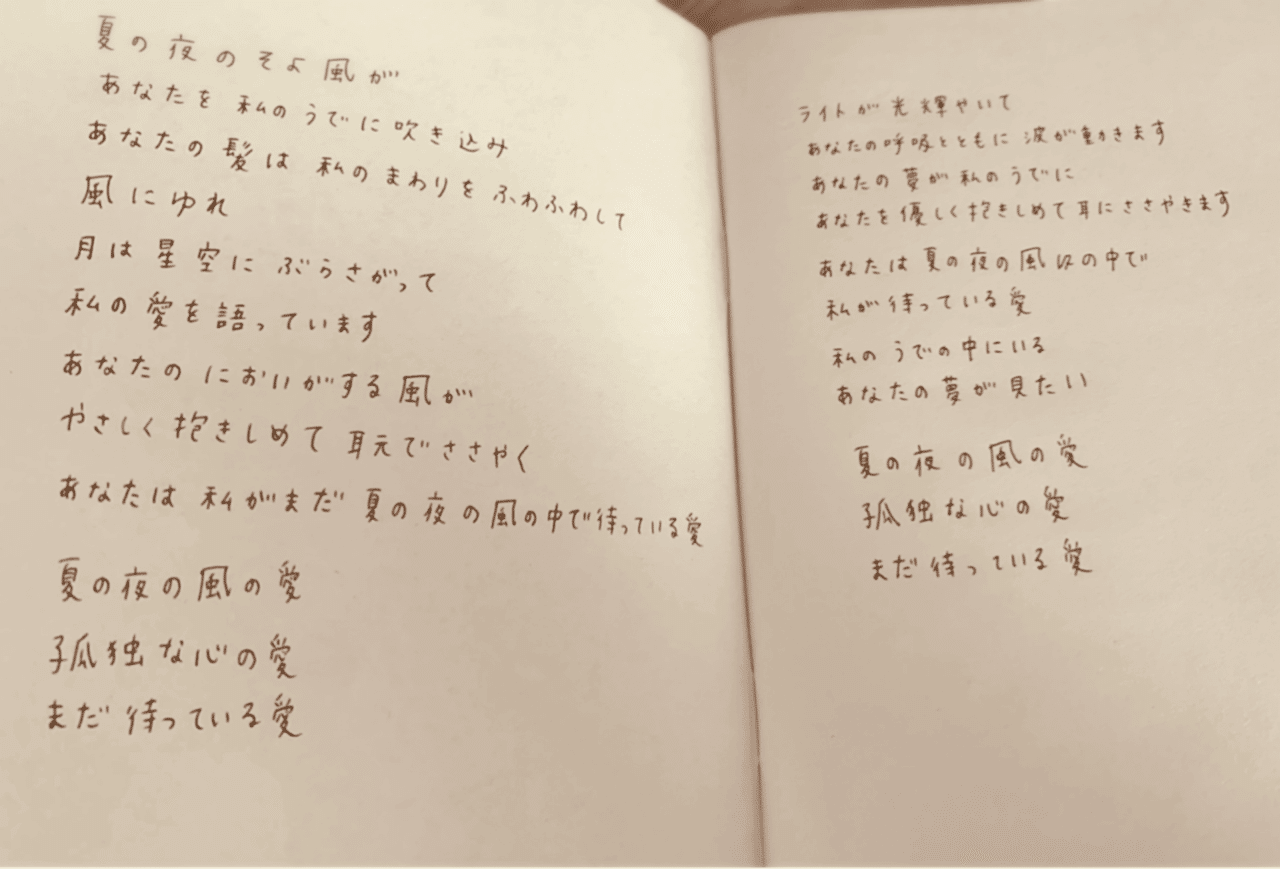 夏の夜のそよ風が
あなたを私のうでに吹き込み
あなたの髪は私のまわりをふわふわして
風にゆれ
月は星空にぶらさがって
私の愛を語っています
あなたのにおいがする風が
やさしく抱きしめて耳元でささやく
あなたは私がまだ夏の夜の風の中で待っている愛
夏の夜の風の愛
孤独な心の愛
まだ待っている愛
ライトが光輝やいて
あなたの呼吸とともに波が動かきます
あなたの夢が私のうでに
あなたを優しく抱きしめて耳にささやきます
あなたは夏の夜の風の中で
私が待っている愛
私のうでの中にいる
あなたの夢が見たい
夏の夜の風の愛
孤独な心の愛
まだ待っている愛